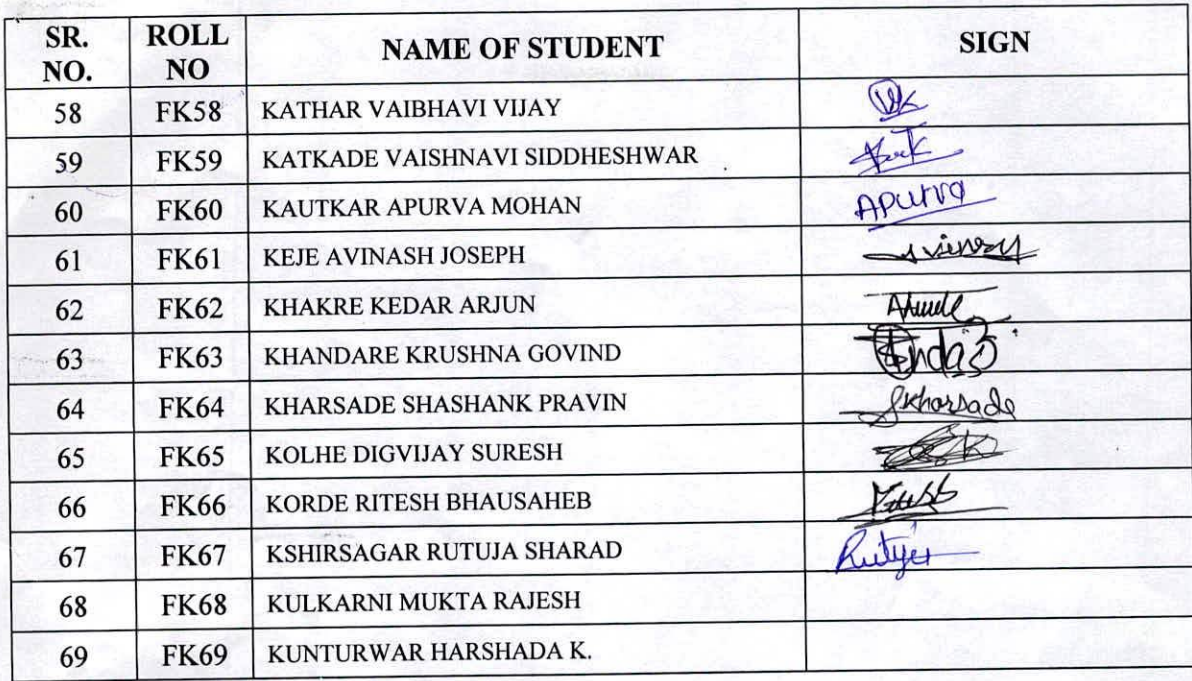 SR. NO. ROLL NO NAME OF STUDENT SIGN
58 FK58 KATHAR VAIBHAVI VIJAY VK
59 FK59 KATKADE VAISHNAVI SIDDHESHWAR
60 FK60 KAUTKAR APURVA MOHAN APurva
61 FK61 KEJE AVINASH JOSEPH
62 FK62 KHAKRE KEDAR ARJUN
63 FK63 KHANDARE KRUSHNA GOVIND
64 FK64 KHARSADE SHASHANK PRAVIN Skharsade
65 FK65 KOLHE DIGVIJAY SURESH
66 FK66 KORDE RITESH BHAUSAHEB
67 FK67 KSHIRSAGAR RUTUJA SHARAD
68 FK68 KULKARNI MUKTA RAJESH
69 FK69 KUNTURWAR HARSHADA K.